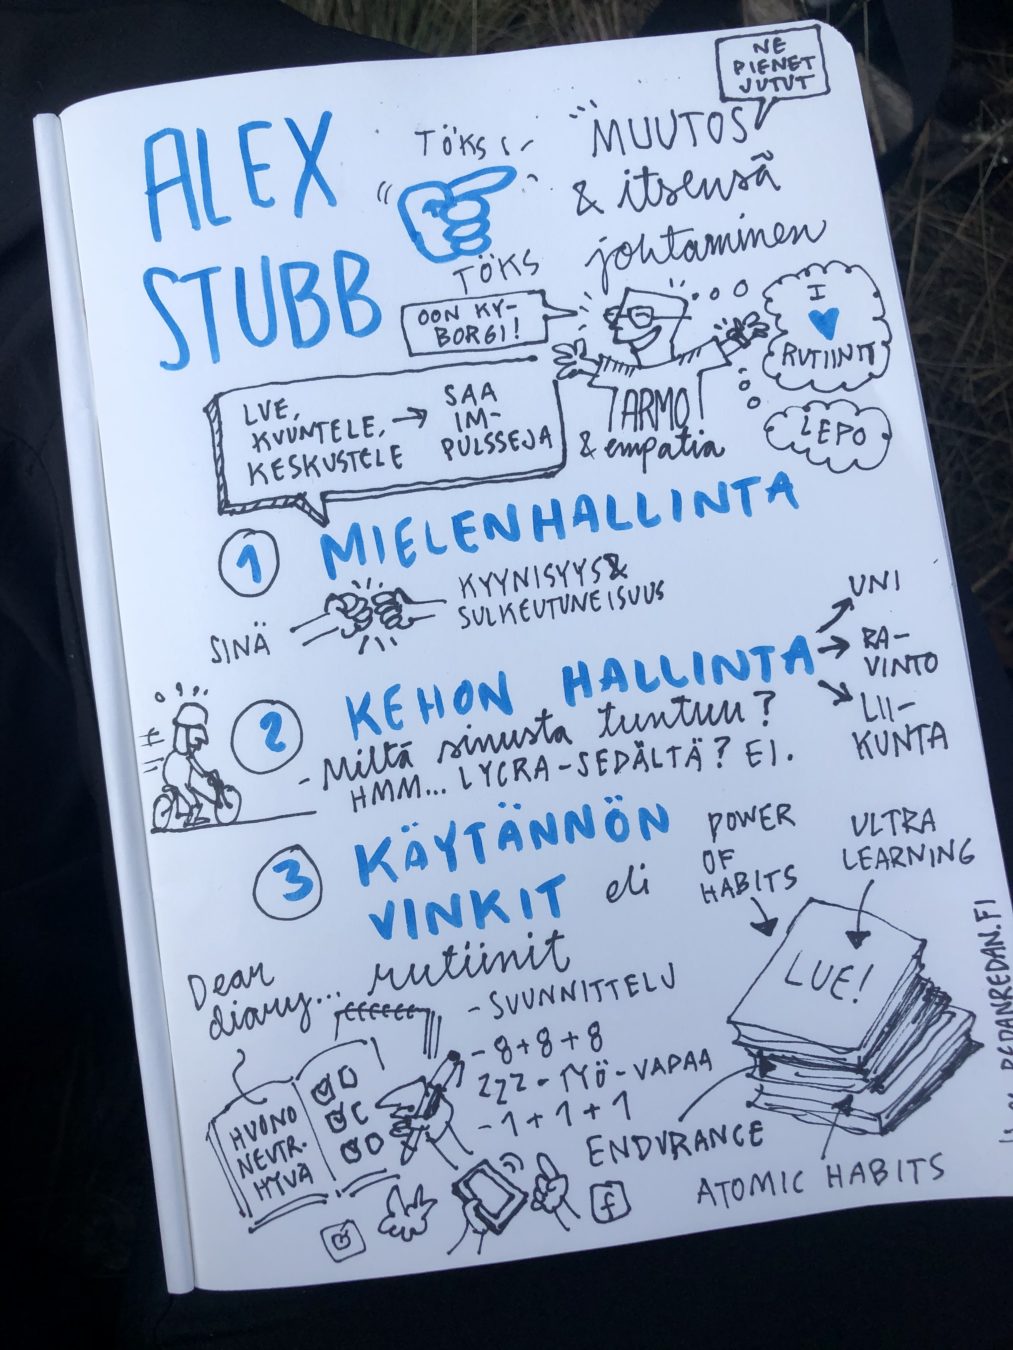 ALEX
STUBB
TÖKS
TÖKS
NE
PIENET
JUTUT
MUUTOS
& itsensä
johtaminen
OON KY-
BORGI!
I
RUTIINIT
LEPO
ARMO!
& empatia
LUE,
KUUNTELE,
KESKUSTELE
SAA
IM-
PULSSEJA
1 MIELENHALLINTA
SINÄ
KYYNISYYS &
SULKEUTUNEISUUS
2 KEHON HALLINTA
UNI
RA-
VINTO
LII-
KUNTA
- Miltä sinusta tuntuu?
HMM... LYCRA-SEDÄLTÄ? EI.
3 KÄYTÄNNÖN
VINKIT eli
rutiinit
POWER
OF
HABITS
ULTRA
LEARNING
LUE!
ENDURANCE
ATOMIC HABITS
Dear
diary...
HUONO
NEUTR.
HYVÄ
- SUUNNITTELU
- 8+8+8
ZZZ - TYÖ - VAPAA
- 1+1+1
f
REDANREDAN.FI